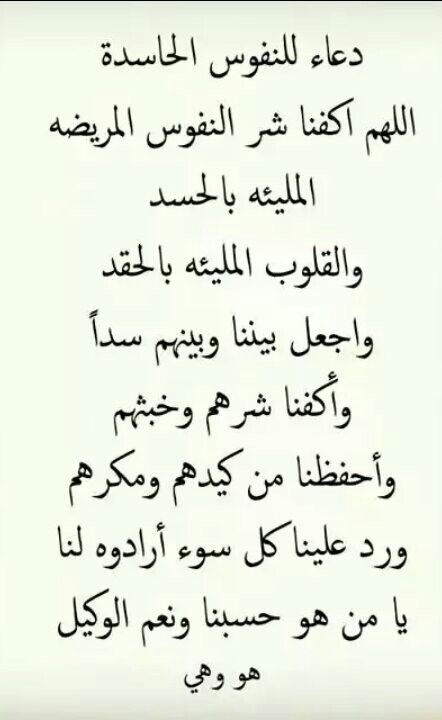 دعاء للنفوس الحاسدة
اللهم اكفنا شر النفوس المريضه
المليئه بالحسد
والقلوب المليئه بالحقد
واجعل بيننا وبينهم سداً
وأكفنا شرهم وخبثهم
وأحفظنا من كيدهم ومكرهم
ورد علينا كل سوء أرادوه لنا
يا من هو حسبنا ونعم الوكيل
هو وهي